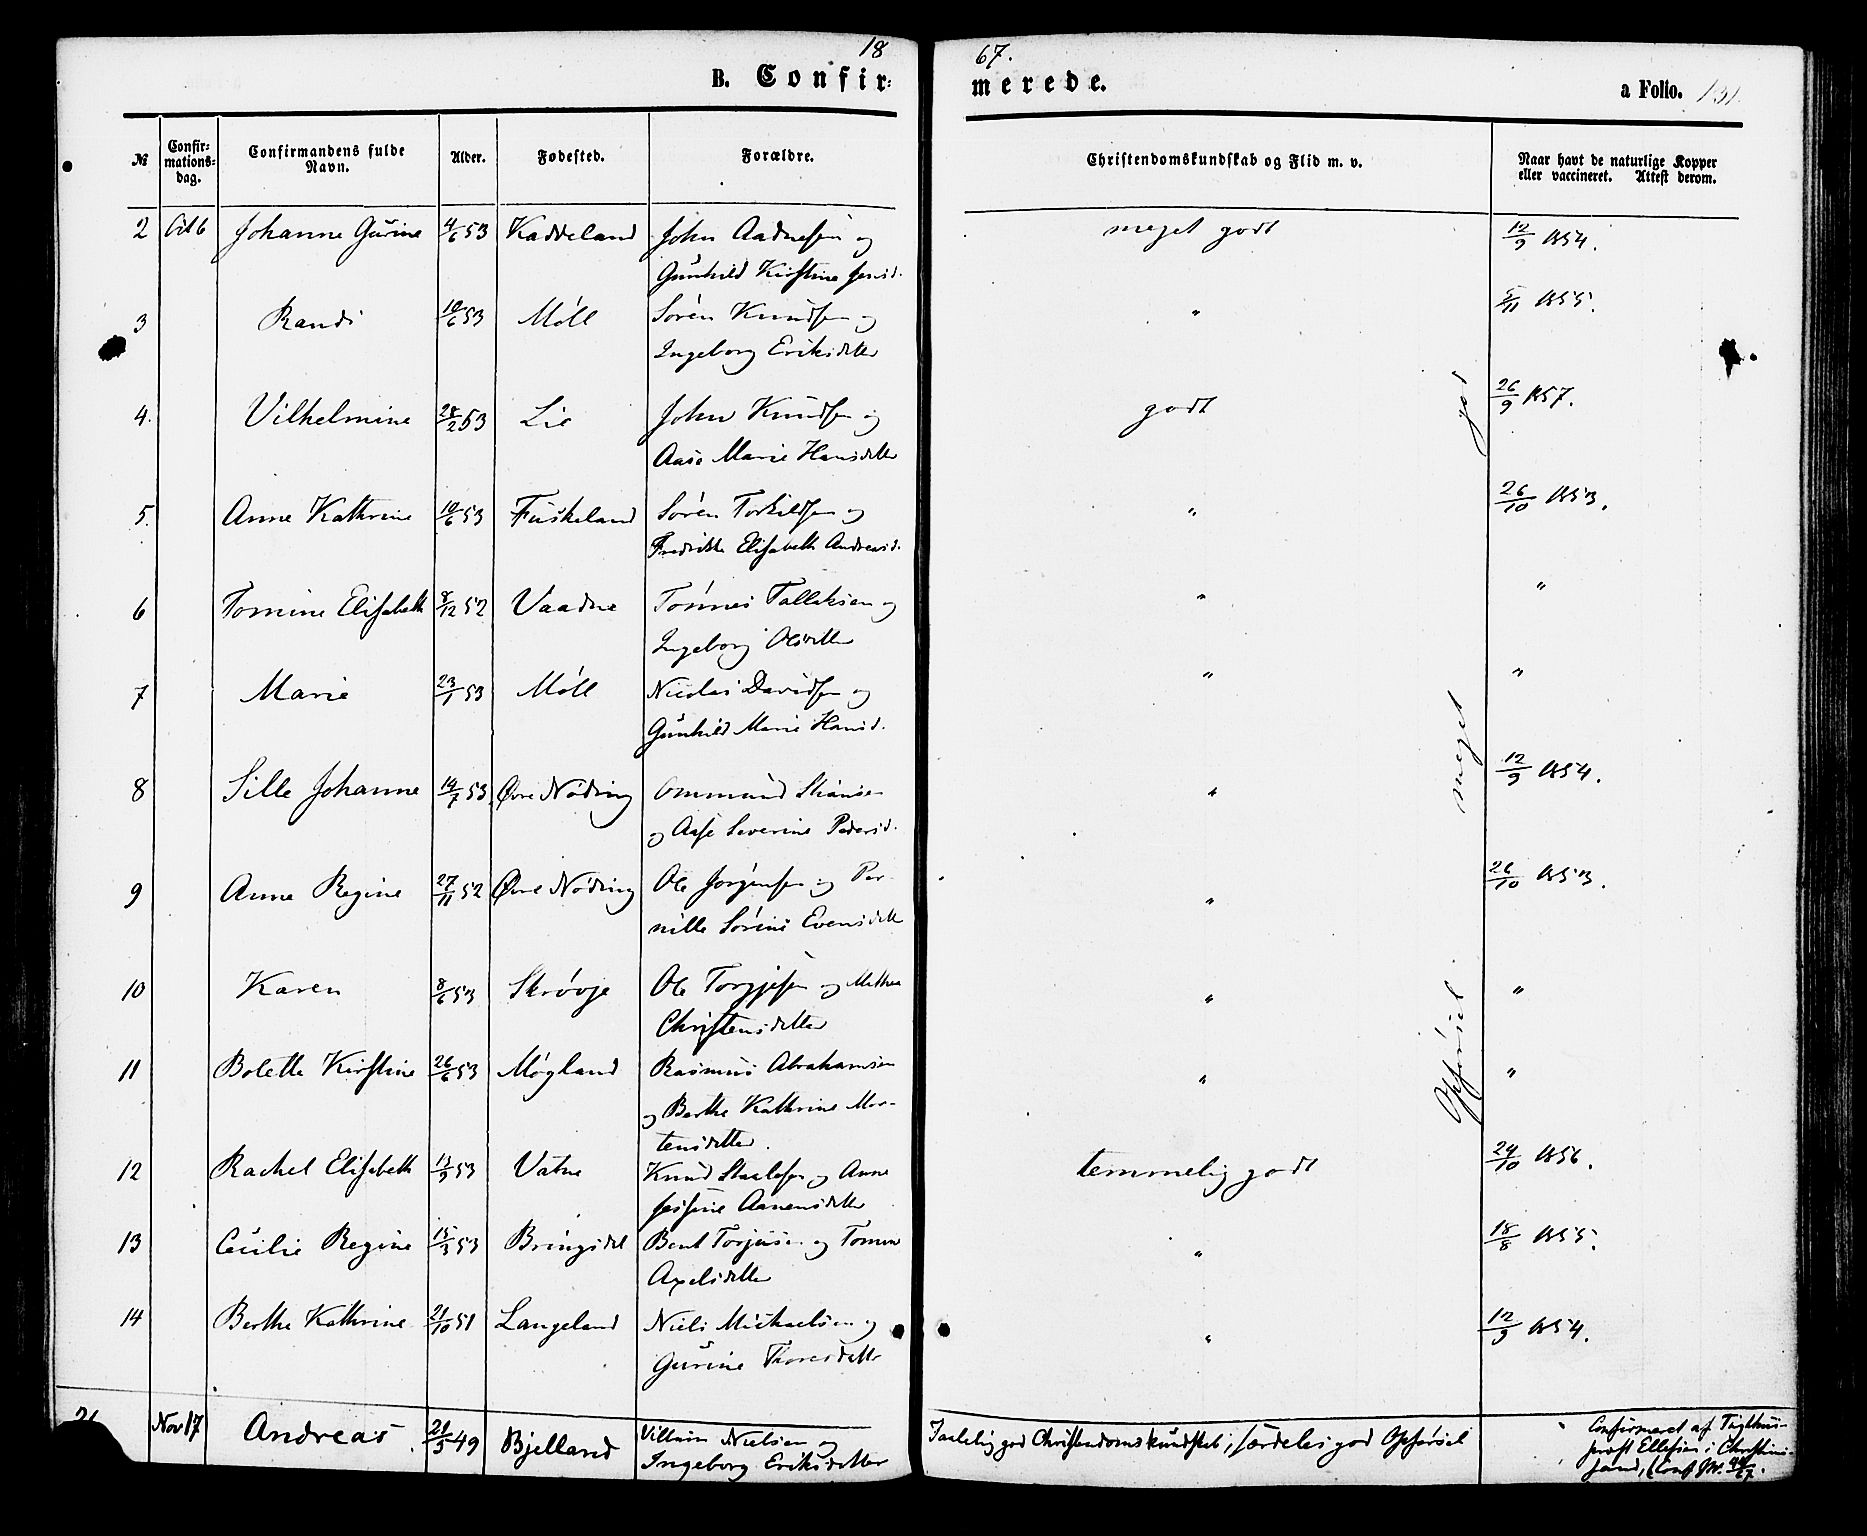 18 67.
B. Confir= merede. a Folio. 131.
№ Confir=mations=dag. Confirmandens fulde Navn. Alder. Fødested. Forældre. Christendomskundskab og Flid m. v. Naar havt de naturlige Kopper eller vaccineret. Attest derom.
2 Johanne Gurine 4/6 53 Kaddeland John Aadnesen og meget godt 12/9 1854.
Gunhild Kirstine
3 Randi 10/6 53 Møll Sören Knudsen og " 5/11 1855.
Ingeborg Eriksdatter
4. Vilhelmine 28/2 53 Lie John Knudsen og godt 26/9 1857.
Aase Marie Hansdatter
5. Anne Kathrine 10/6 53 Fuskeland Sören Torkildsen og " 26/10 1853.
Fredrikke Elisabeth Andreasd.
6 Tomine Elisabeth 8/12 52 Vaadne Tönnes Tallaksen og " "
Ingeborg Olsdatter
7 Marie 23/1 53 Møll Nicolai Davidsen og " "
Gunhild Marie Hansd.
8 Sille Johanne 14/7 53 Øvre Nödning Ommund " 12/9 1854.
og Aase Severine Pedersd.
9 Anne Regine 27/11 52 Øvre Nödning Ole Jörgensen og Per- " 26/10 1853.
nille Sörine Evensdatt
10 Karen 8/6 53 Skröoje Ole Torgjesen og Mathea " "
Christensdatter
11 Bolette Kirstine 26/6 53 Møgland Rasmus Abrahamsen " "
og Berthe Kathrine Mor-
tensdatter.
12 Rachel Elisabeth 13/9 53 Vatne Knud Staalesen og Anne temmelig godt 24/10 1856.
Josfine Aanensdatter
13 Cecilie Regine 15/3 53 Bringsdal Bent Torjusen og Tomine " 18/8 1855.
Axelsdatter
14 Berthe Kathrine 21/10 51 Langeland Niels Michaelsen og " 12/9 1854.
Gurine Thoresdatter
Opførsel meget god
Nov 17 Andreas 21/5 49 Bjelland Villum Nielsen og Taalelig god Christendomskundskab, særdeles god Opførsel Confirmeret af Tugthus-
Ingeborg Eriksdatter præst Ellefsen i Christian-
sand,